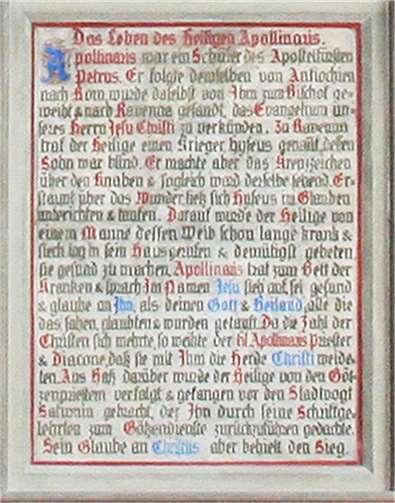 Das Leben des Heiligen Apollinaris.
Apollinaris war ein Schüler des Apostelfürsten
Petrus. Er folgte demselben von Antiochien
nach Rom, wurde daselbst von Ihm zum Bischof ge-
weiht & nach Ravenna gesandt, das Evangelium un-
seres Herrn Jesu Christi zu verkünden. Zu Ravenna
traf der Heilige einen Krieger, Hyseus genañt, dessen
Sohn war blind. Er machte aber das Kreuzzeichen
über den Knaben & sogleich ward derselbe sehend. Er-
staunt über das Wunder, ließ sich Hyseus im Glauben
unterichten & taufen. Darauf wurde der Heilige von
einem Manne dessen Weib schon lange krank &
siech lag in sein Haus gerufen & demütigst gebeten
sie gesund zu machen. Apollinaris trat zum Bett der
Kranken & sprach Im Namen Jesu steh auf, sei gesund
& glaube an Ihn, als deinen Gott & Heiland, alle die
das sahen, glaubten & wurden getauft. Da die Zahl der
Christen sich mehrte, so weihte der hl. Apollinaris Priester
& Diacone, daß sie mit Ihm die Herde Christi weide-
ten. Aus Haß darüber wurde der Heilige von den Göt-
zenpriestern verfolgt & gefangen vor den Stadtvogt
Saturnin gebracht, der Ihn durch seine Schriftge-
lehrten zum Götzendienste zurückzuführen gedachte.
Sein Glaube an Christus aber behielt den Sieg.